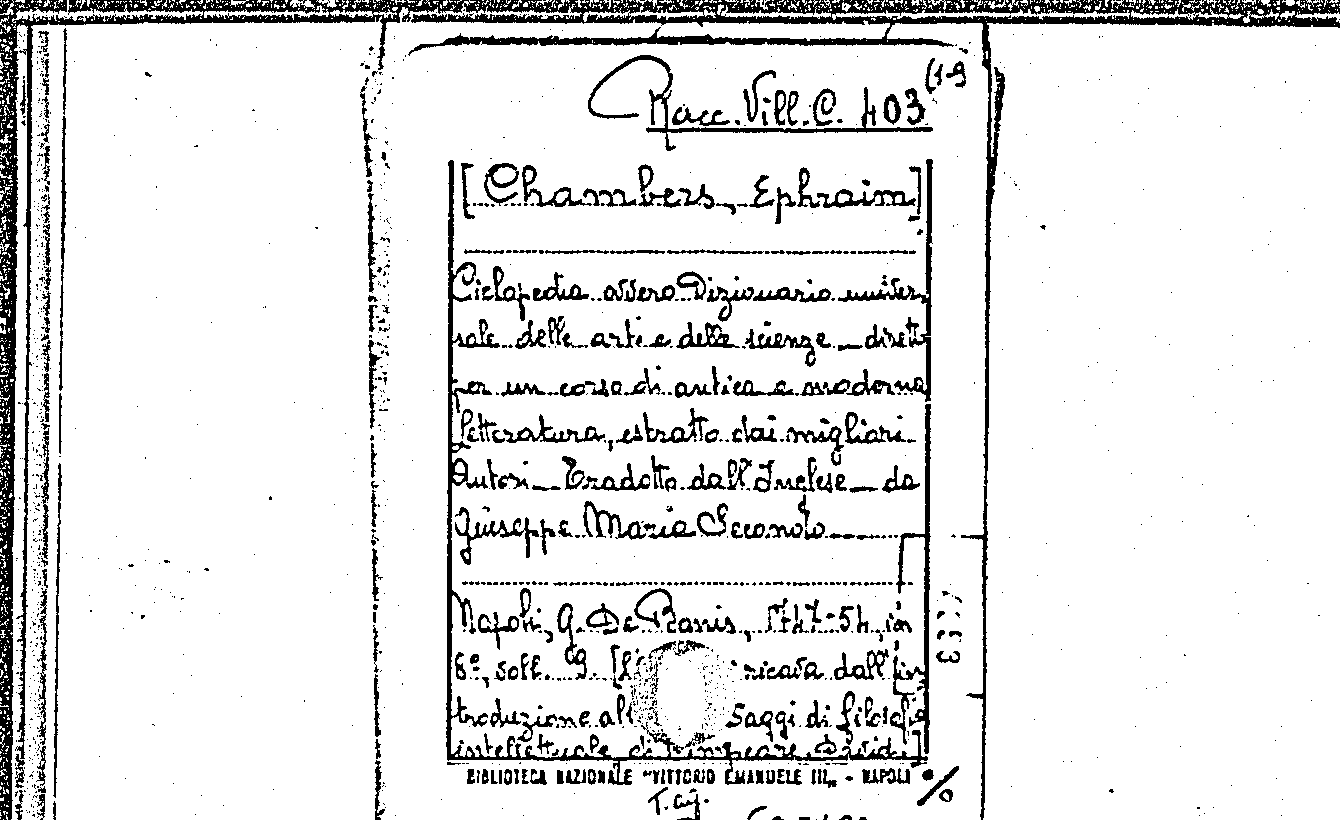 Racc. Vill. C. 403 (1-9
[Chambers, Ephraim]
Ciclopedia ovvero Dizionario univer
sale delle arti e delle scienze — dirett
per un corso di antica e moderna
Letteratura, estratto dai migliori
Autori — Tradotto dall'Inglese — da
Giuseppe Maria Secondo
Napoli, G. De Bonis, 1747-54, in
8º, voll. 9. ricava dall'in
troduzione al Saggi di filosofia
intellettuale di David.]
BIBLIOTECA NAZIONALE "VITTORIO EMANUELE III„ - NAPOLI